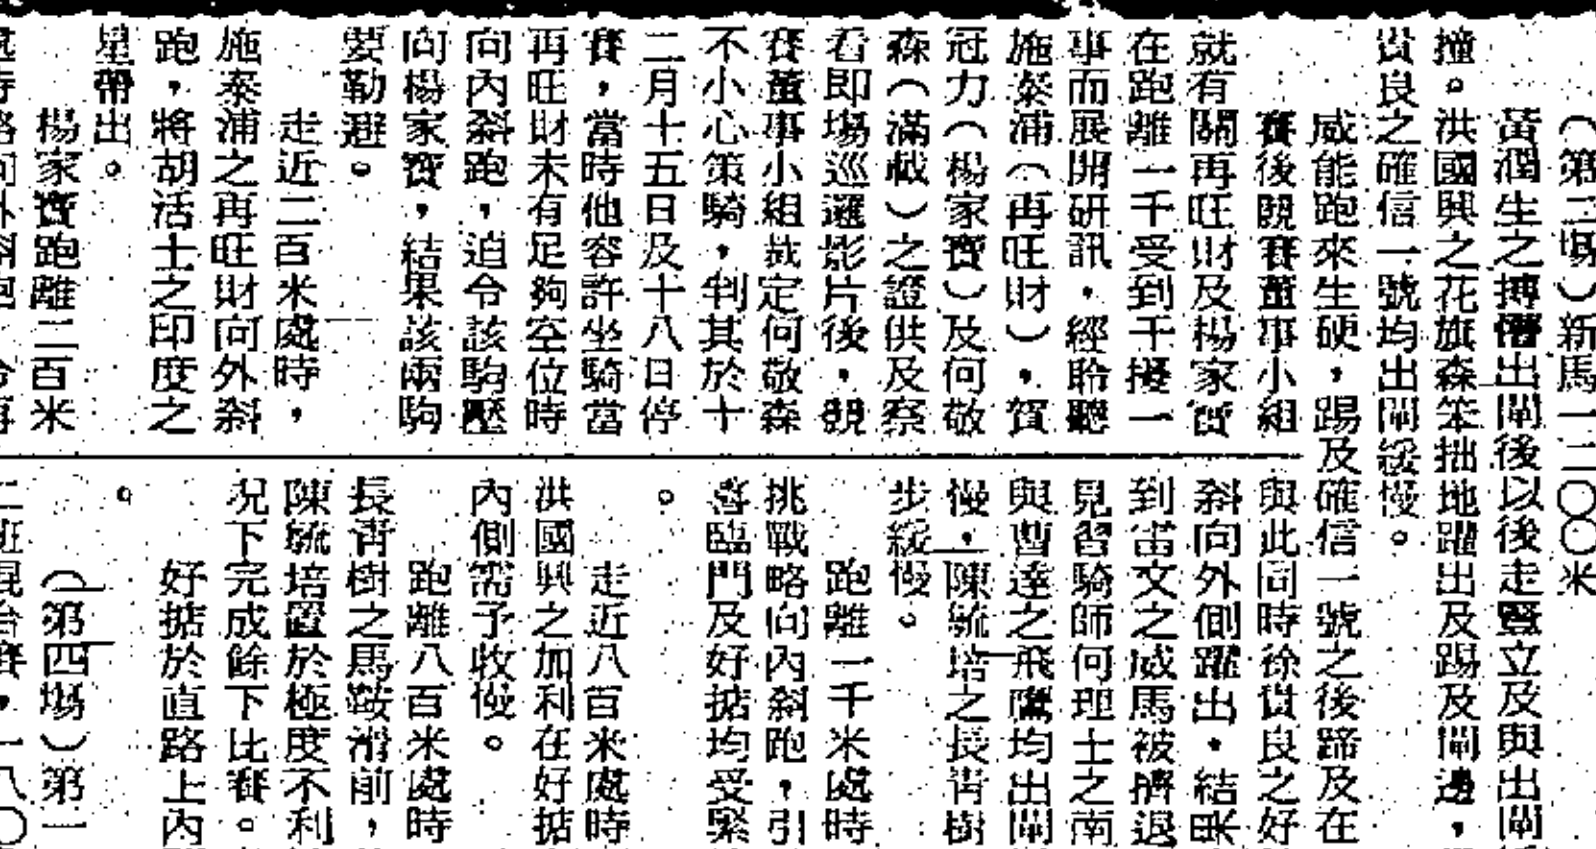 （第二場）新馬一二〇〇米
黃潤生之搏懵出閘後以後走豎立及與出閘
撞。洪國興之花旗森笨拙地躍出及踢及閘邊，
貴良之確信一號均出閘緩慢。
威能跑來生硬，踢及確信一號之後蹄及在
賽後競賽董事小組
就有關再旺財及楊家寶
在跑離一千受到干擾一
事而展開研訊，經聆聽
施泰浦（再旺財），賀
冠力（楊家寶）及何敬
森（滿載）之證供及察
看即場巡邏影片後，競
賽董事小組裁定何敬森
不小心策騎，判其於十
二月十五日及十八日停
賽，當時他容許坐騎當
再旺財未有足夠空位時
向內斜跑，迫令該駒壓
向楊家寶，結果該兩駒
要勒避。
走近二百米處時，
施泰浦之再旺財向外斜
跑，將胡活士之印度之
星帶出。
楊家寶跑離二百米
與此同時徐貴良之好
斜向外側躍出，結果
到笛文之威馬被擠退
見習騎師何理士之南
與曹達之飛鷹均出閘
慢，陳毓培之長青樹
步緩慢。
跑離一千米處時
挑戰略向內斜跑，引
喜臨門及好掂均受緊
。
走近八百米處時
洪國興之加利在好掂
內側需予收慢。
跑離八百米處時
長青樹之馬鞍滑前，
陳毓培置於極度不利
況下完成餘下比賽。
好掂於直路上內
。
（第四場）第一